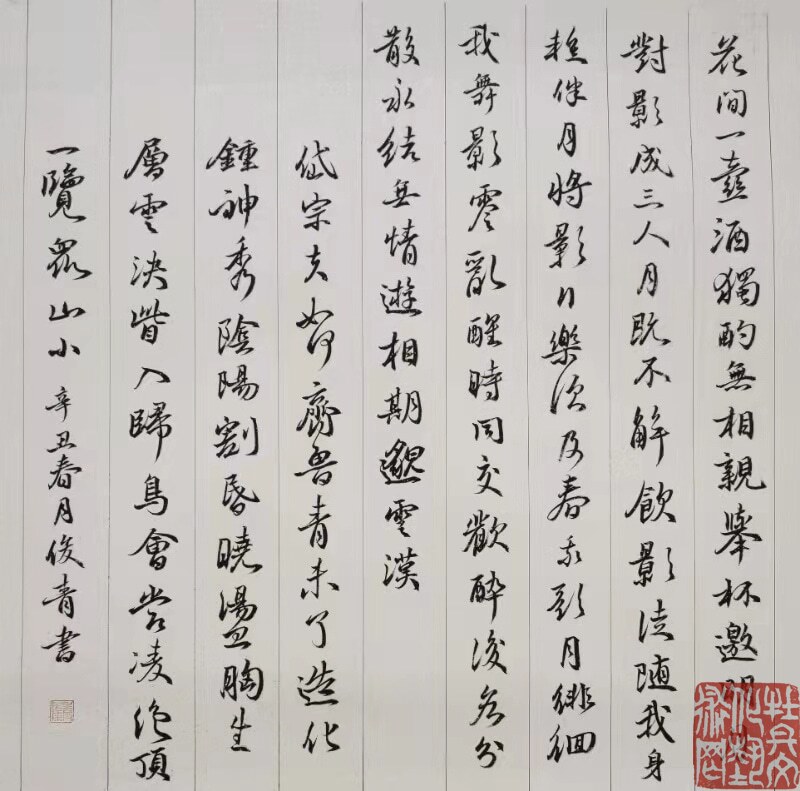 花間一壺酒獨酌無相親舉杯邀明月
對影成三人月既不解飲影徒隨我身
暫伴月將影行樂須及春我歌月徘徊
我舞影零亂醒時同交歡醉後各分
散永結無情遊相期邈雲漢
岱宗夫如何齊魯青未了造化
鍾神秀陰陽割昏曉盪胸生
層雲決眥入歸鳥會當凌絕頂
一覽眾山小 辛丑春月俊青書